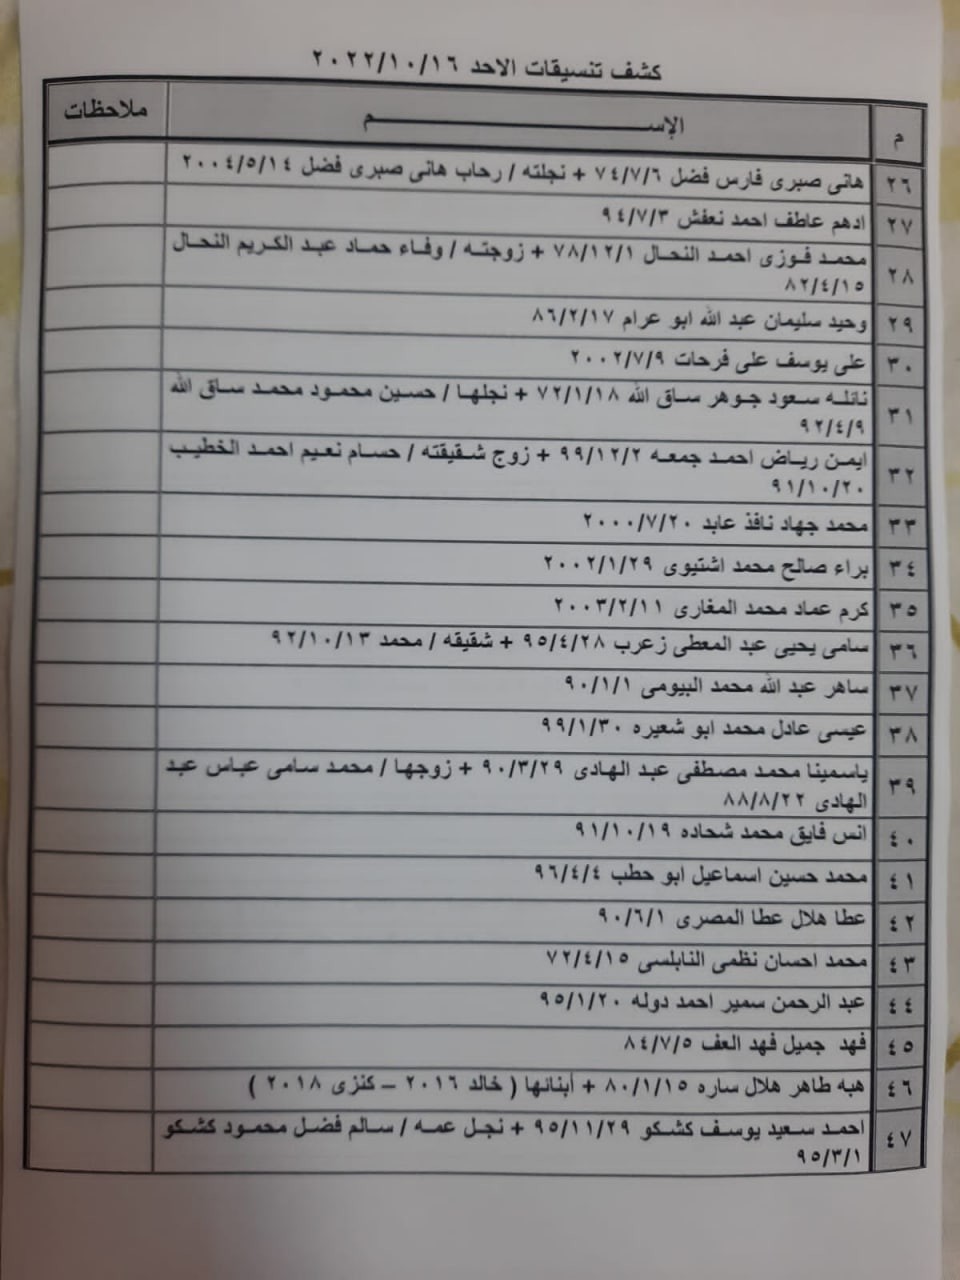 كشف تنسيقات الاحد ٢٠٢٢/١٠/١٦
م الإســـــــم ملاحظات
٢٦ هانى صبرى فارس فضل ٧٤/٧/٦ + نجلته / رحاب هانى صبرى فضل ٢٠٠٤/٥/١٤
٢٧ ادهم عاطف احمد نعفش ٩٤/٧/٣
٢٨ محمد فوزى احمد النحال ٧٨/١٢/١ + زوجته / وفاء حماد عبد الكريم النحال
٨٢/٤/١٥
٢٩ وحيد سليمان عبد الله ابو عرام ٨٦/٢/١٧
٣٠ على يوسف على فرحات ٢٠٠٢/٧/٩
٣١ نائله سعود جوهر ساق الله ٧٢/١/١٨ + نجلها / حسين محمود محمد ساق الله
٩٢/٤/٩
٣٢ ايمن رياض احمد جمعه ٩٩/١٢/٢ + زوج شقيقته / حسام نعيم احمد الخطيب
٩١/١٠/٢٠
٣٣ محمد جهاد نافذ عابد ٢٠٠٠/٧/٢٠
٣٤ براء صالح محمد اشتيوى ٢٠٠٢/١/٢٩
٣٥ كرم عماد محمد المغارى ٢٠٠٣/٢/١١
٣٦ سامى يحيى عبد المعطى زعرب ٩٥/٤/٢٨ + شقيقه / محمد ٩٢/١٠/١٣
٣٧ ساهر عبد الله محمد البيومى ٩٠/١/١
٣٨ عيسى عادل محمد ابو شعيره ٩٩/١/٣٠
٣٩ ياسمينا محمد مصطفى عبد الهادى ٩٠/٣/٢٩ + زوجها / محمد سامى عباس عبد
الهادى ٨٨/٨/٢٢
٤٠ انس فايق محمد شحاده ٩١/١٠/١٩
٤١ محمد حسين اسماعيل ابو حطب ٩٦/٤/٤
٤٢ عطا هلال عطا المصرى ٩٠/٦/١
٤٣ محمد احسان نظمى النابلسى ٧٢/٤/١٥
٤٤ عبد الرحمن سمير احمد دوله ٩٥/١/٢٠
٤٥ فهد جميل فهد العف ٨٤/٧/٥
٤٦ هبه طاهر هلال ساره ٨٠/١/١٥ + أبنائها ( خالد ٢٠١٦ – كنزى ٢٠١٨ )
٤٧ احمد سعيد يوسف كشكو ٩٥/١١/٢٩ + نجل عمه / سالم فضل محمود كشكو
٩٥/٣/١